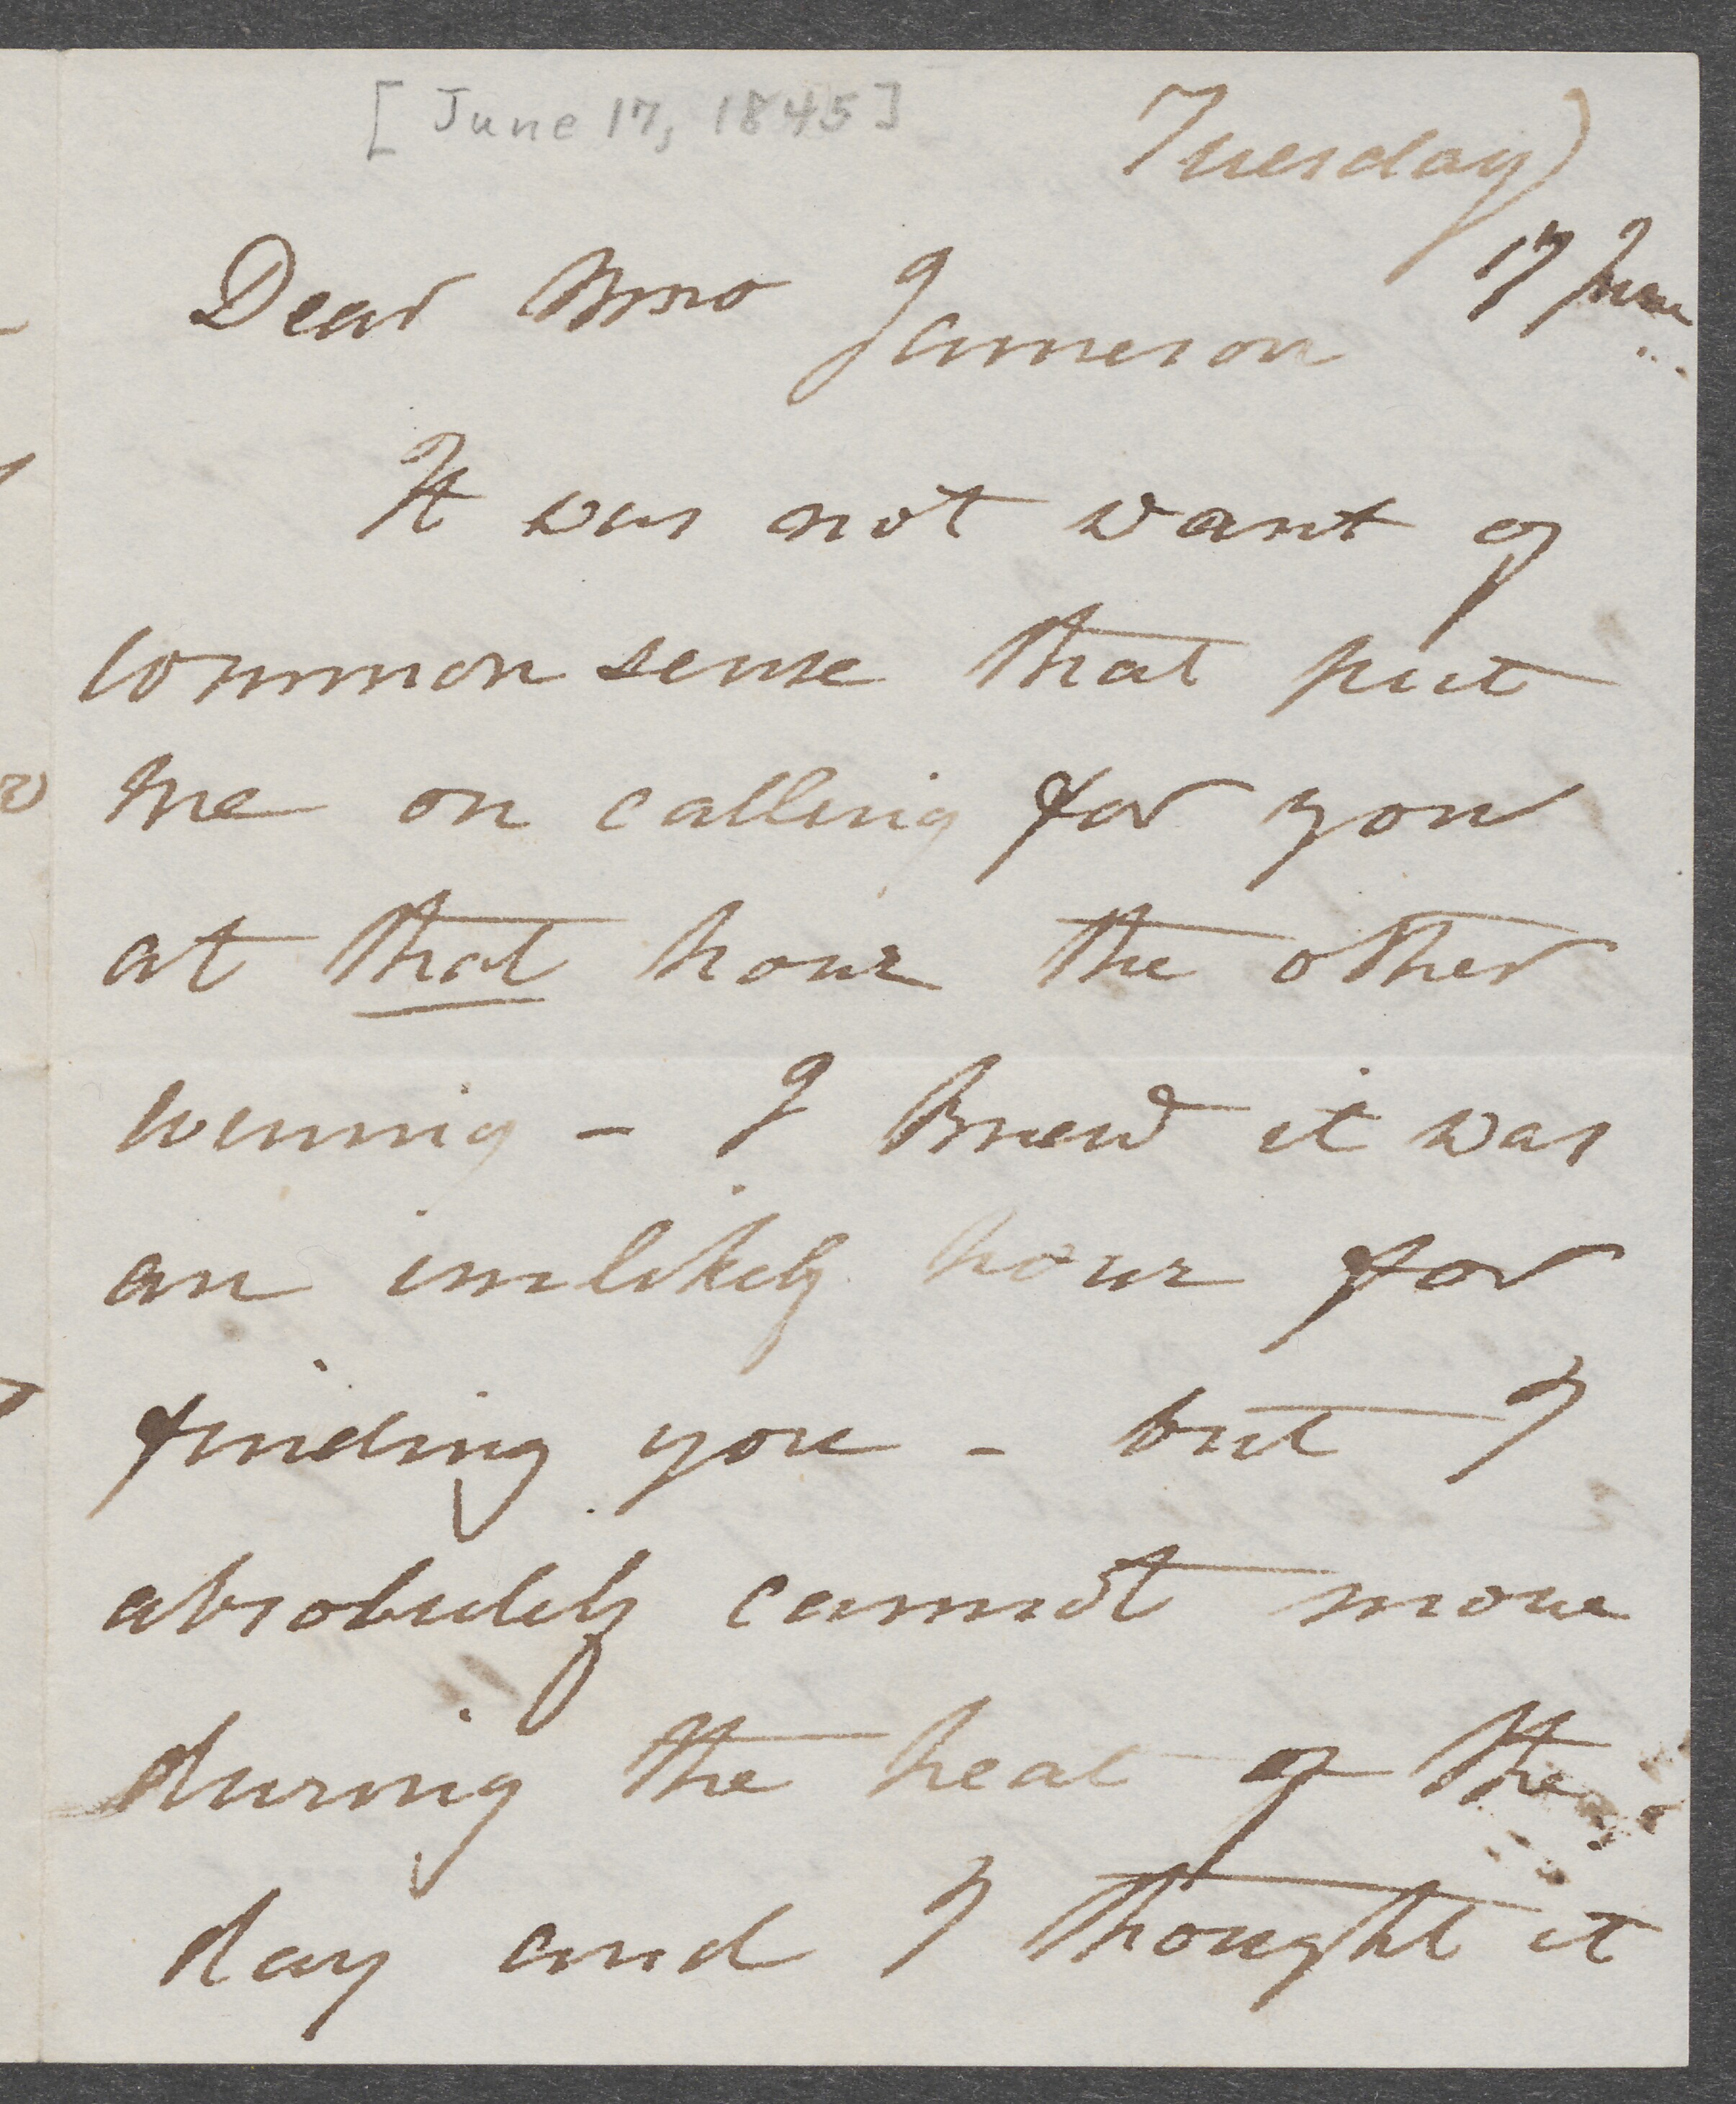 [June 17, 1845]
Tuesday
17 June
Dear Mrs Jameson
It was not want of
common sense that put
me on calling for you
at that hour the other
evening – I knew it was
an unlikely hour for
finding you – but I
absolutely cannot move
during the heat of the
day and I thought it